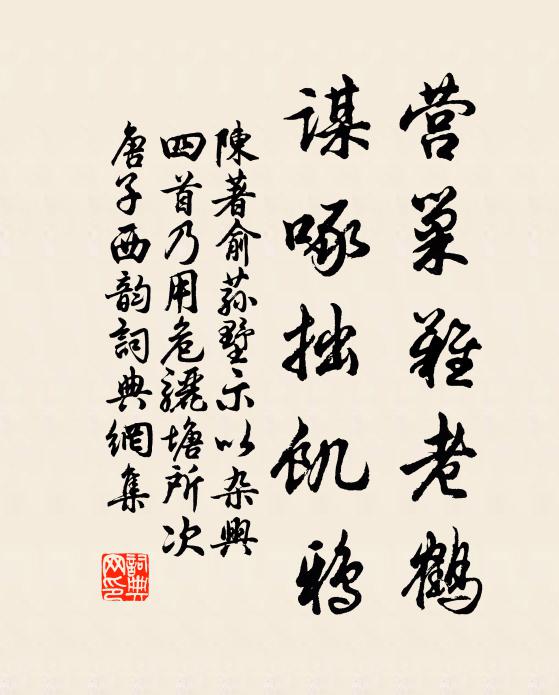 营巢难老鹤
谋啄拙饥鸦
陳著俞荪墅示以杂興
四首乃用危驪塘所次
唐子西韵詞典網集
詞典網印